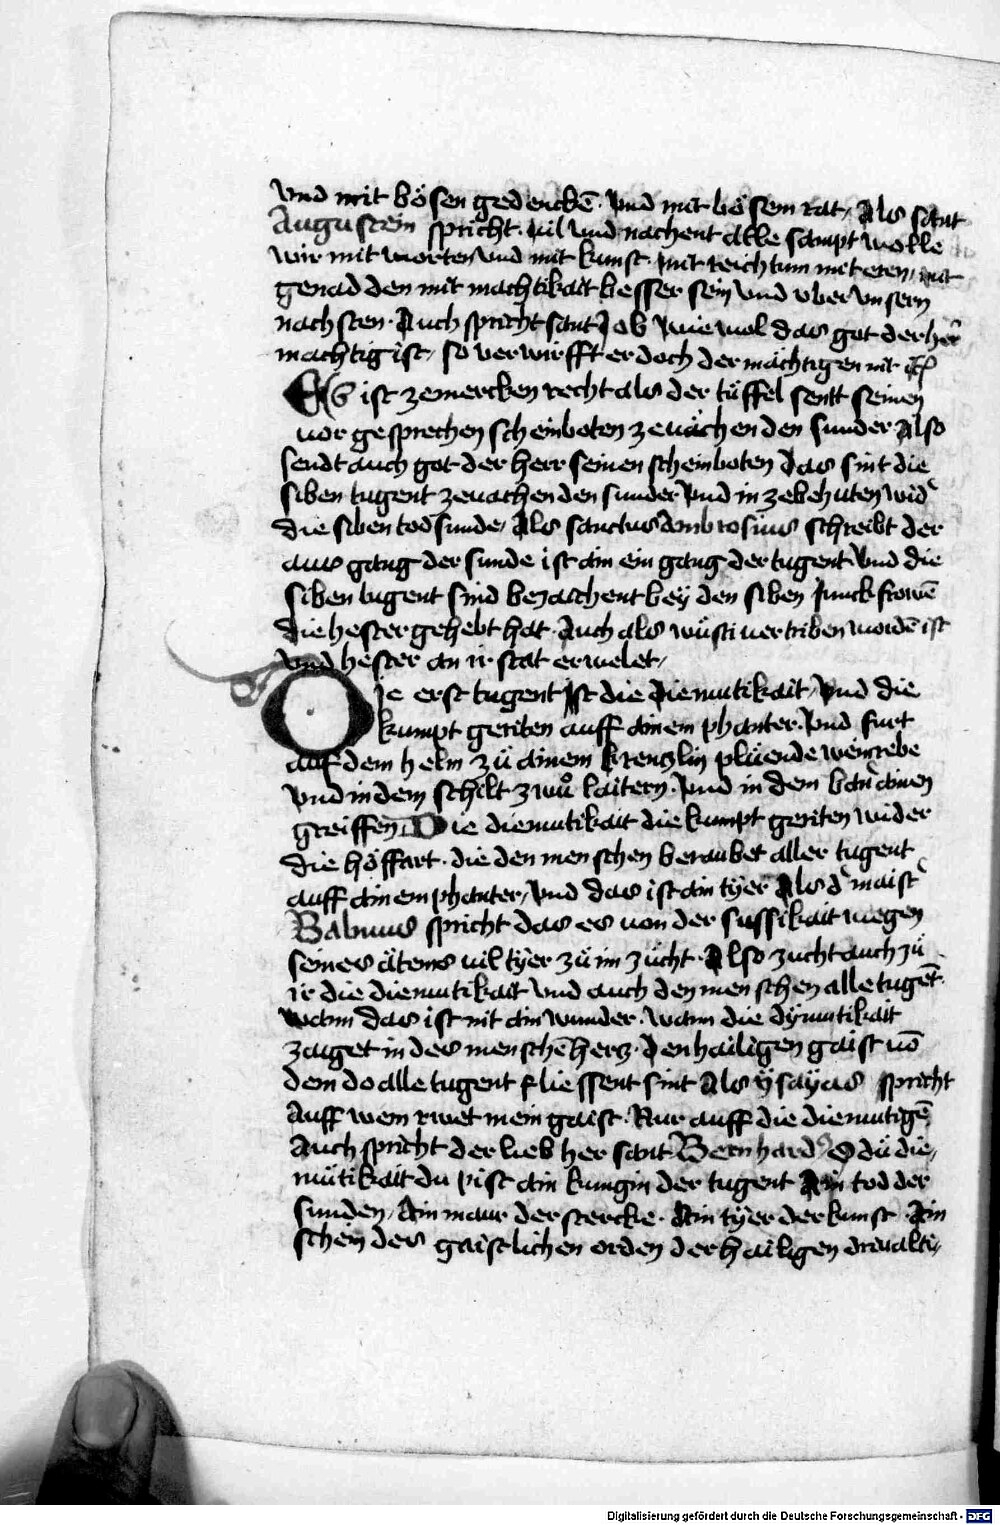 vnd mit bösen gedenckē · vnd mit bösem rat / Als sant
Augustein spricht · vil vnd nachent alle sampt wolle
wir mit worten vnd mit kunst · mit reichtum mit eren / mit
genad den mit machtikait besser sein vnd vber vnsern
nachsten · Auch spricht sant Job wie wol das got der her
machtig ist / so verwirfft er doch der mächtigen nit
Es ist zemercken recht als der tüffel sentt seinen
vor gesprechen scheinboten zevächen den sunder Also
sendt auch got der herr seinen scheinboten Das sint die
siben tugent zevachen den sunder vnd in zebehuten wid
die siben tod sunde / Als sanctus Ambrosius schreibt der
aus gang der sunde ist ain ein gang der tugent vnd die
siben tugent sind bezaichent bey den siben Junckfrowē
die hester gehebt hat · Auch als wüsti vertriben wordē ist
vnd hester an ir stat erwelet /
Die erst tugent Ist die Diemutikait / vnd die
kumpt geriten auff ainem phanter · vnd furt
auf dem helm zü ainem krenczlin plüende wenrebe
vnd in dem schilt zwů laitern · vnd in dem ban ainen
greiffen Die diemutikait die kumpt geriten wider
die höffart · die den menschen beraubet aller tugent
auff ainem phanter / vnd das ist ain tyer Als d maist
Babnius spricht das es von der sussikait wegen
seines ätems vil tyer zü im zücht · Also zucht auch zü
ir die diemutikait vnd auch den menschen alle tugēt
wann das ist nit ain wunder · wann die dymutikait
zaiget in des menschē hercz · Den hailigen gaist vō
dem do alle tugent fliessent sint Als ysayas spricht
Auff wem rwet mein gaist · Nur auff die diemutigē
Auch spricht der lieb her sant Bernhard O dü die /
mütikait du pist ain kungin der tugent Ain tod der
sunden / Ain maur der stercke · Ain tyer der kunst · Ain
schein des gaistlichen orden der hailigen drivalti /
Digitalisierung gefördert durch die Deutsche Forschungsgemeinschaft - DFG